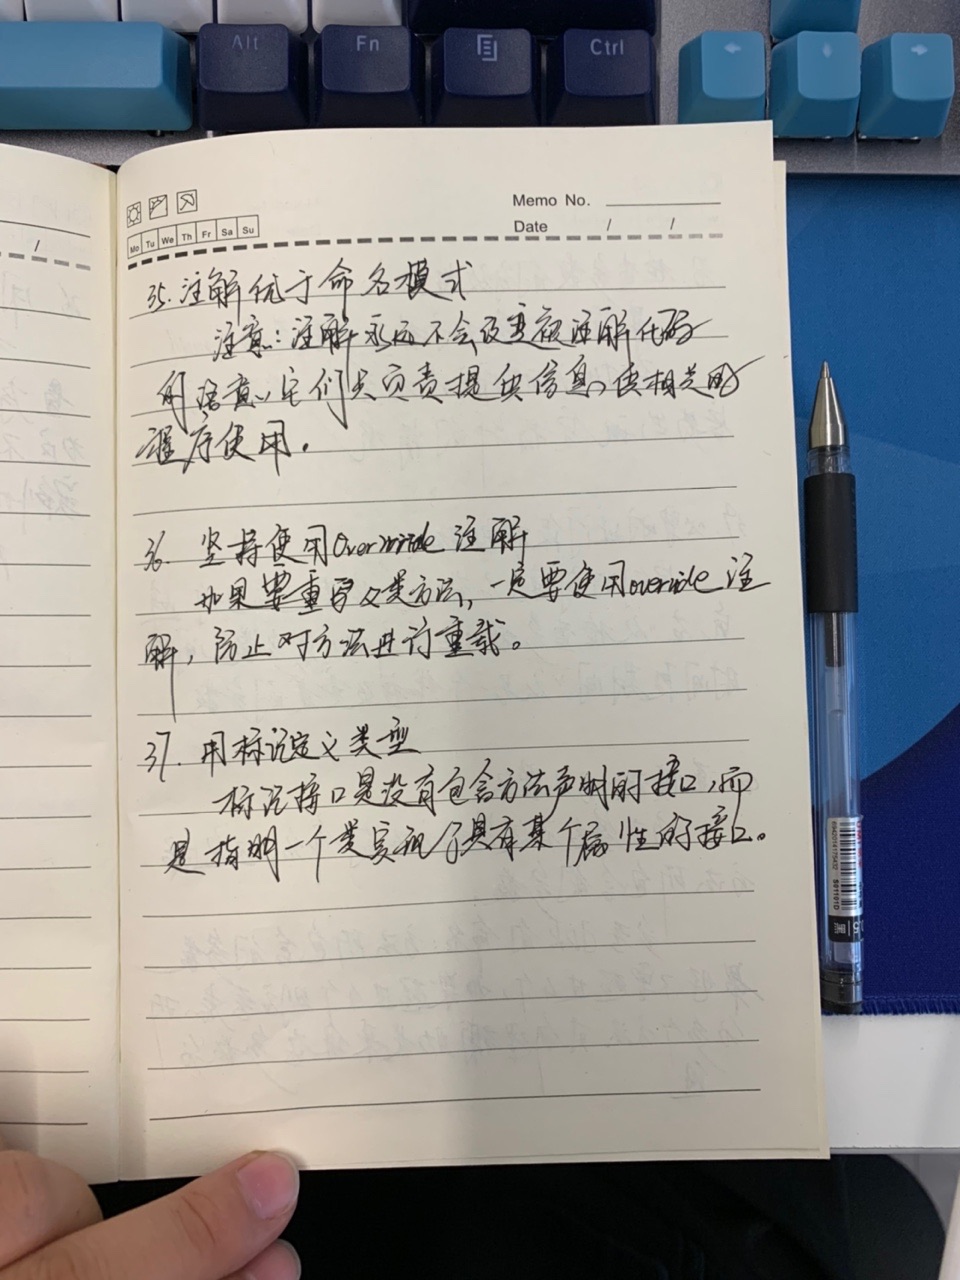 Alt Fn Ctrl
Memo No.
Date / /
Mo Tu We Th Fr Sa Su
35. 注解优于命名模式
注意:注解永远不会改变被注解代码
的语意、它们只负责提供信息、供相关的
程序使用。
36. 坚持使用Override 注解
如果要重写父类方法,一定要使用override 注
解,防止对方法进行重载。
37. 用标记定义类型
标记接口是没有包含方法声明的接口,而
是指明一个类实现了具有某个属性的接口。